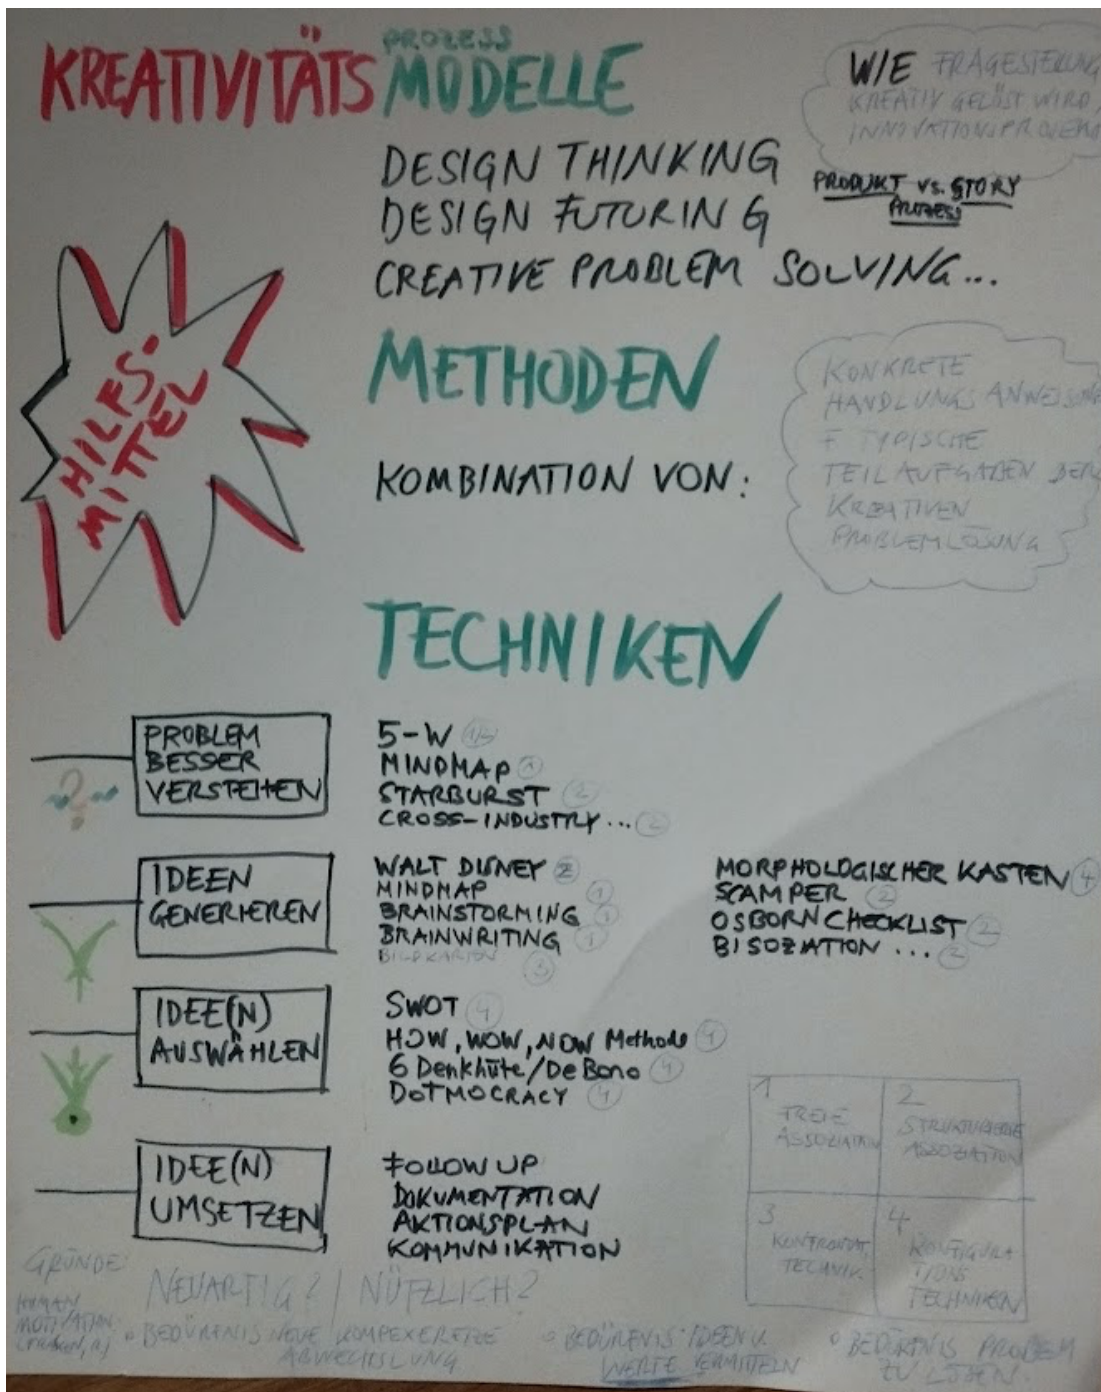 KREATIVITÄTS
PROZESS
MODELLE
WIE FRAGESTELLUNG
KREATIV GELÖST WIRD,
INNOVATIONSPROZESS
DESIGN THINKING
DESIGN FUTURING
CREATIVE PROBLEM SOLVING...
PRODUKT vs. STORY
PROZESS
HILFS-
MITTEL
METHODEN
KOMBINATION VON:
KONKRETE
HANDLUNGSANWEISUNG
F TYPISCHE
TEILAUFGABEN DER
KREATIVEN
PROBLEMLÖSUNG
TECHNIKEN
PROBLEM
BESSER
VERSTEHEN
?
5-W 1/2
MINDMAP 1
STARBURST 2
CROSS-INDUSTRY... 2
IDEEN
GENERIEREN
WALT DISNEY 2
MINDMAP 1
BRAINSTORMING 1
BRAINWRITING 1
BILDKARTEN 3
MORPHOLOGISCHER KASTEN 4
SCAMPER 2
OSBORN CHECKLIST 2
BISOZIATION ... 2
IDEE(N)
AUSWÄHLEN
SWOT 4
HOW, WOW, NOW Methode 4
6 Denkhüte/De Bono 4
DOTMOCRACY 4
IDEE(N)
UMSETZEN
FOLLOW UP
DOKUMENTATION
AKTIONSPLAN
KOMMUNIKATION
1
FREIE
ASSOZIATION
2
STRUKTURIERTE
ASSOZIATION
3
KONFRONTAT.
TECHNIK.
4
KONFIGURA
TIONS
TECHNIKEN
GRÜNDE:
HUMAN
MOTIVATION
NEUARTIG? / NÜTZLICH?
BEDÜRFNIS NEUE
ABWECHSLUNG
BEDÜRFNIS: IDEEN U.
WERTE VERMITTELN
BEDÜRFNIS PROBLEM
ZU LÖSEN